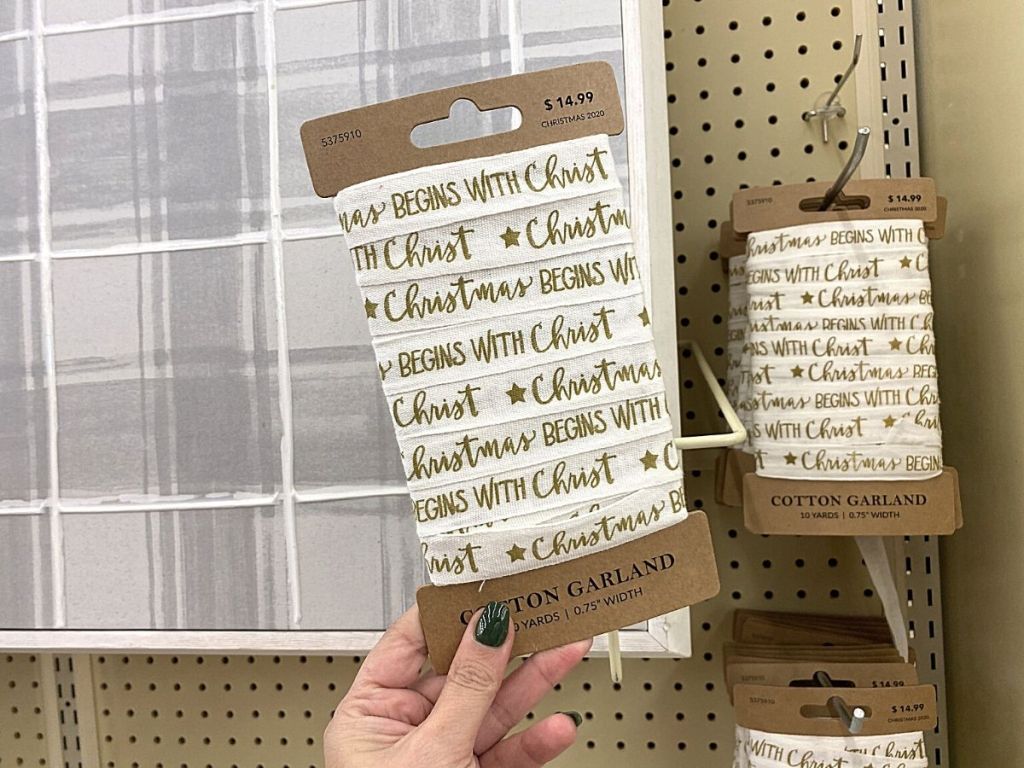 5375910
$ 14.99
CHRISTMAS 2020
mas BEGINS WITH Christ
TH Christ ★ Christm
★ Christmas BEGINS WI
BEGINS WITH Christ ★
Christ ★ Christmas
Christmas BEGINS WITH
BEGINS WITH Christ ★
hrist ★ Christmas BE
COTTON GARLAND
10 YARDS | 0.75" WIDTH
5375910
$ 14.99
CHRISTMAS 2020
Christmas BEGINS WITH C
EGINS WITH Christ ★
hrist ★ Christmas BE
istmas BEGINS WITH C
NS WITH Christ ★ C
ist ★ Christmas BEG
stmas BEGINS WITH C
S WITH Christ ★ Chri
t ★ Christmas BEGIN
COTTON GARLAND
10 YARDS | 0.75" WIDTH
$ 14.99
5375910
$ 14.99
CHRISTMAS 2020
WITH Christ